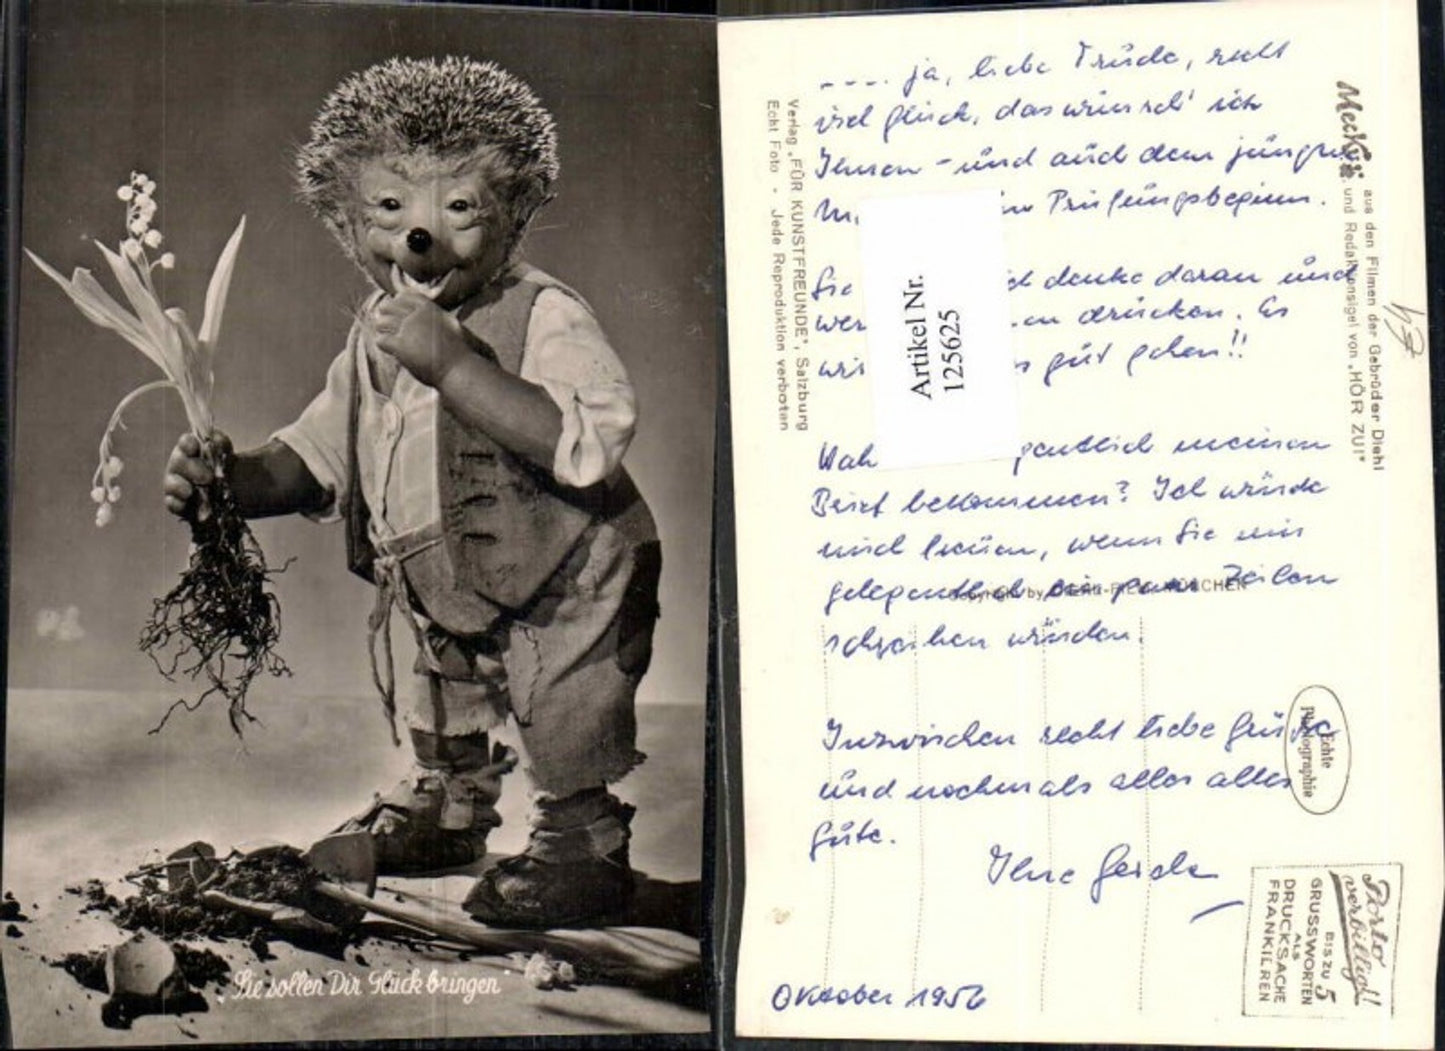 „Sie sollen Dir Glück bringen“
.... ja, liebe Trude, recht
viel Glück, das wünsch' ich
Ihnen - und auch dem jüngren
Prüfungsbeginn.
Sie ich denke daran und
drücken. Es
gut gehen!!
meinen
Brief bekommen? Ich würde
mich freuen, wenn Sie mir
gelegentlich ein paar Zeilen
schreiben würden.
Inzwischen recht liebe Grüße
und nochmals alles alles
Gute.
Ihre Gerda
Oktober 1956
Artikel Nr.
125625
Verlag „FÜR KUNSTFREUNDE“, Salzburg
Echt Foto • Jede Reproduktion verboten
Mecki
aus den Filmen der Gebrüder Diehl
und Redaktionsigel von „HÖR ZU!“
Copyright by MÜNCHEN
Echte
Photographie
Porto
verbilligt!!
BIS ZU 5
GRUSSWORTEN
ALS
DRUCKSACHE
FRANKIEREN